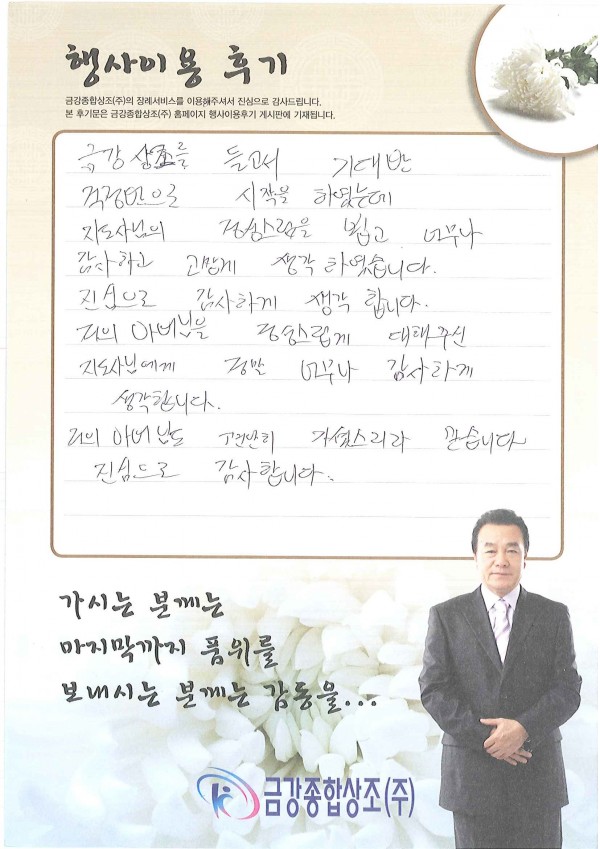 행사이용 후기
금강종합상조(주)의 장례서비스를 이용해주셔서 진심으로 감사드립니다.
본 후기문은 금강종합상조(주) 홈페이지 행사이용후기 게시판에 기재됩니다.
금강 상조를 들고서 기대반
걱정반으로 시작을 하였는데
지도사님의 정성스럼을 뵙고 너무나
감사하고 고맙게 생각하였습니다.
진심으로 감사하게 생각 합니다.
저의 아버님을 정성스럽게 대해주신
지도사님에게 정말 너무나 감사하게
생각합니다.
저의 아버님도 편안히 가셨스리라 믿습니다
진심으로 감사합니다.
가시는 분께는
마지막까지 품위를
보내시는 분께는 감동을...
금강종합상조(주)